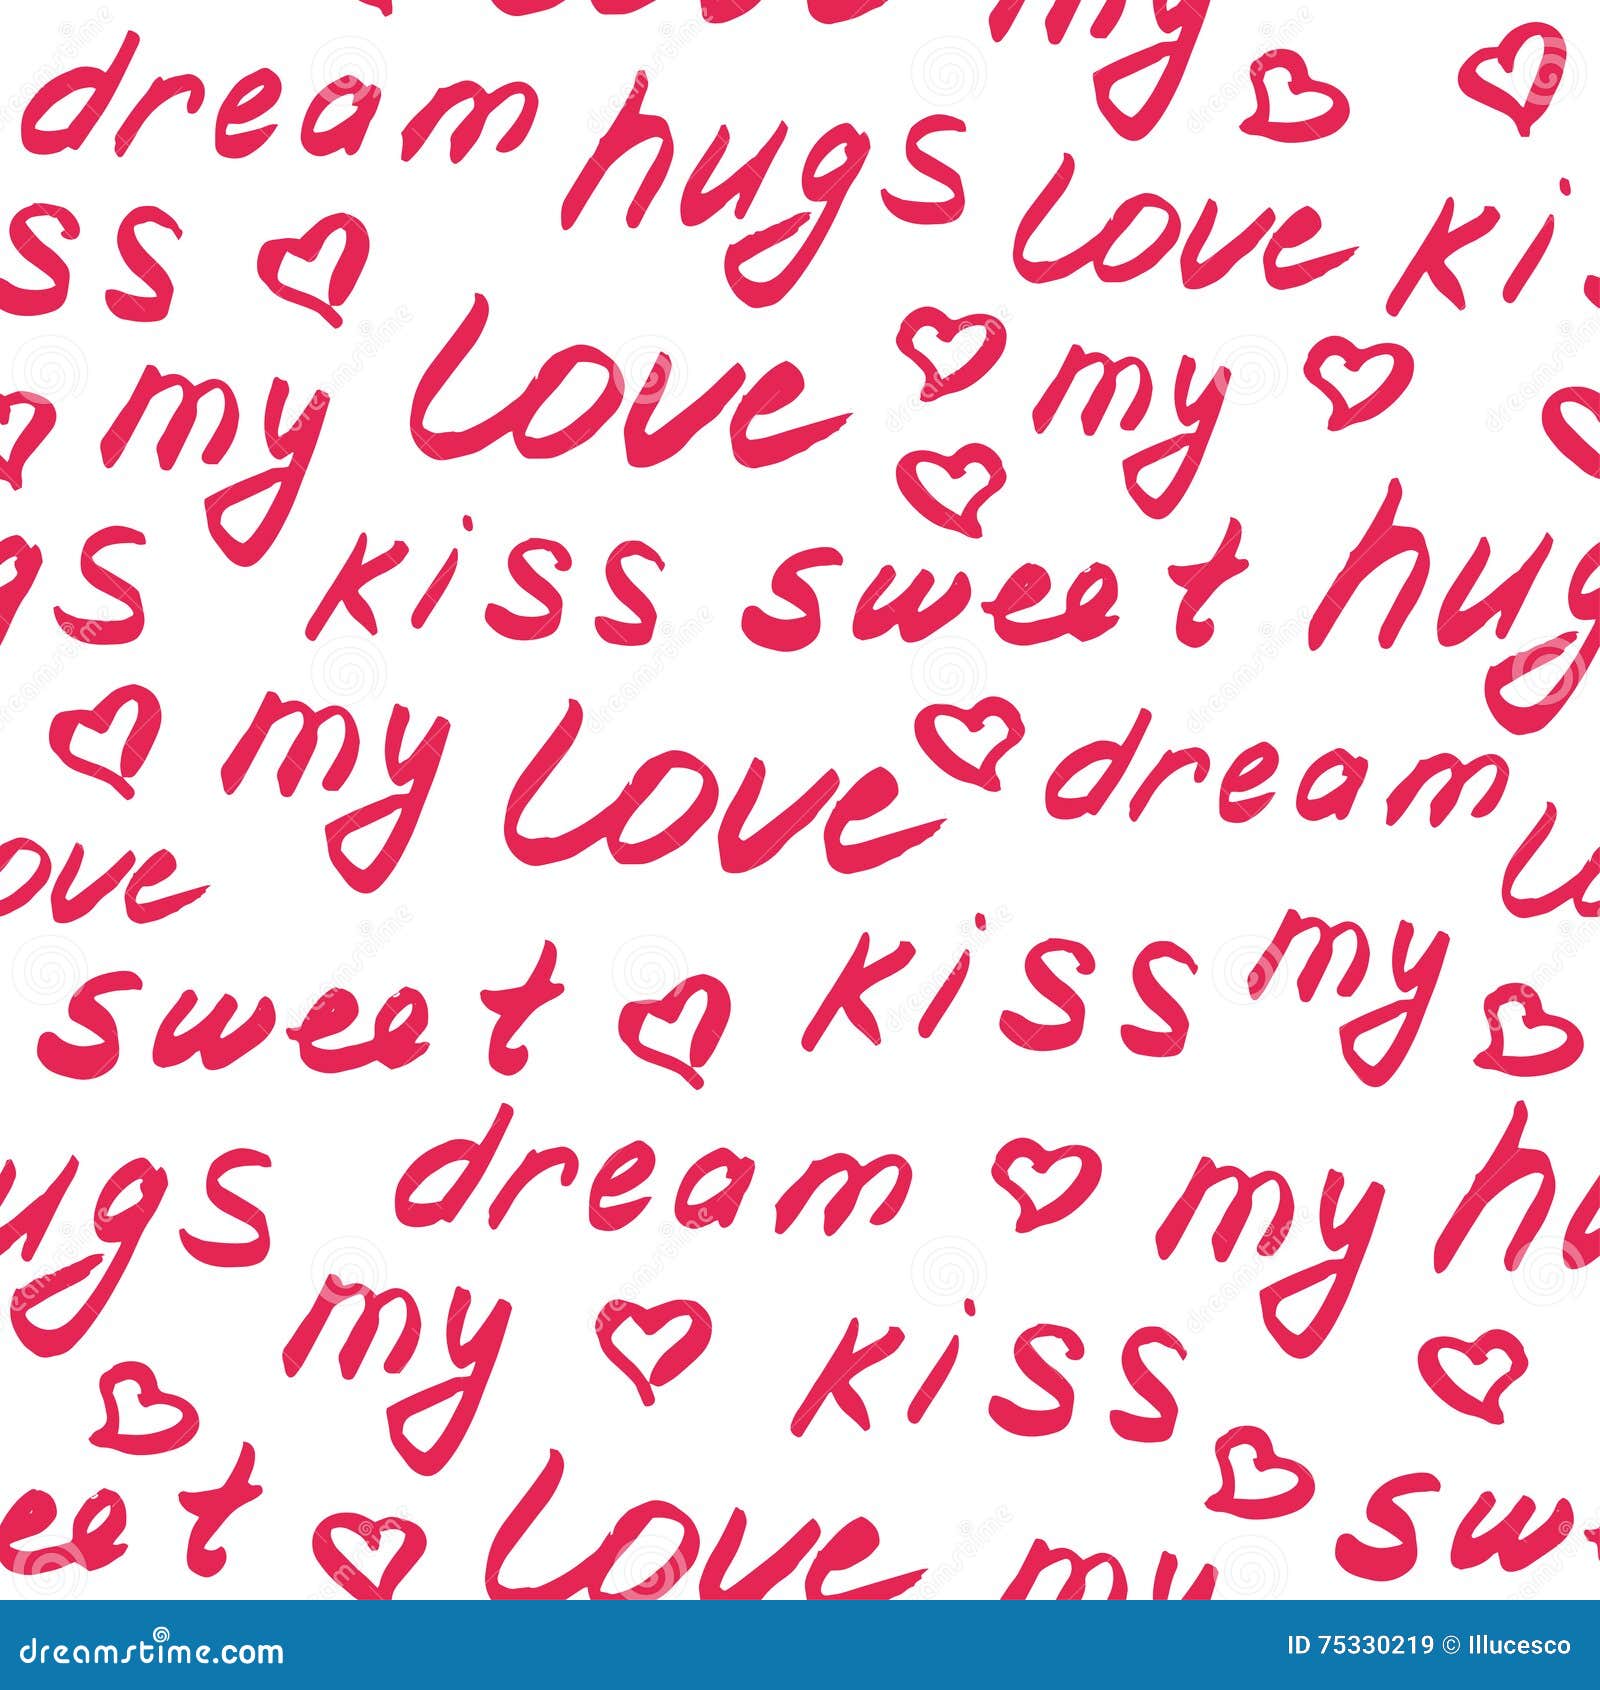 my
dream hugs love ki
ss
my love my
gs kiss sweet hug
my love dream
ove lo
sweet kiss my
ugs dream my hu
my kiss
eet love my swe
dreamstime.com ID 75330219 © Illucesco